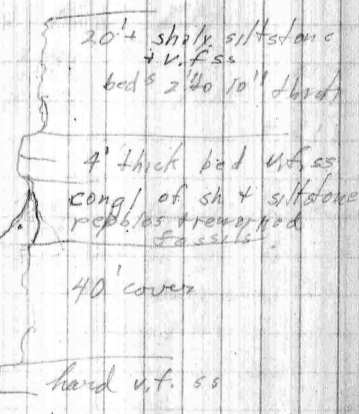 20'+ shaly siltstone
+ v.f ss
beds 2" to 10" thick
4' thick bed v.f. ss
congl of sh + siltstone
pebbles + reworked
fossils.
40' cover
hard v.f. ss